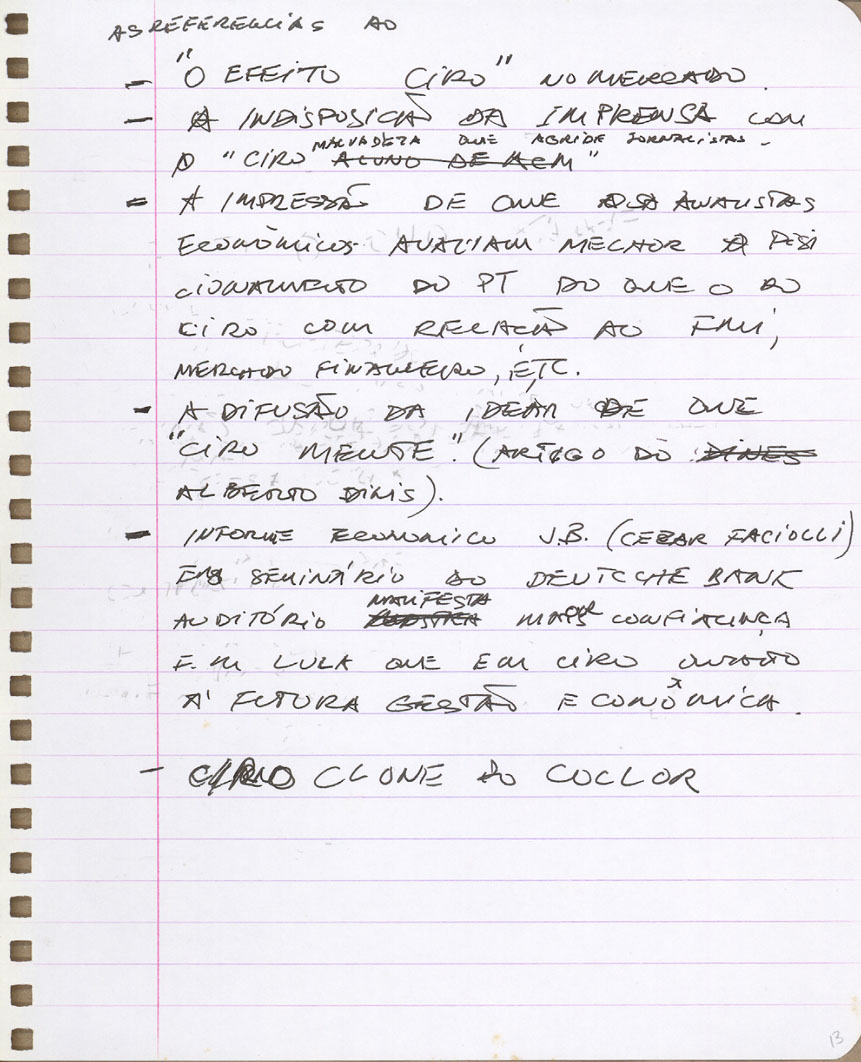 AS REFERENCIAS AO
- "O EFEITO CIRO" NO MERCADO.
- A INDISPOSIÇÃO DA IMPRENSA COM
MALVADEZA QUE AGRIDE JORNALISTAS -
O "CIRO ALUNO DE ACM"
- A IMPRESSÃO DE QUE OS ANALISTAS
ECONÔMICOS AVALIAM MELHOR O POSI
CIONAMENTO DO PT DO QUE O DO
CIRO COM RELAÇÃO AO FMI,
MERCADO FINANCEIRO, ETC.
- A DIFUSÃO DA IDEIA DE QUE
"CIRO MENTE". (ARTIGO DO DINES
ALBERTO DINIS).
- INFORME ECONOMICO J.B. (CEZAR FACIOLLI)
EM SEMINÁRIO DO DEUTCCHE BANK
MANIFESTA
AUDITÓRIO MAIOR CONFIANÇA
EM LULA QUE EM CIRO QUANTO
A' FUTURA GESTÃO ECONÔMICA.
- CIRO CLONE DO COLLOR
13